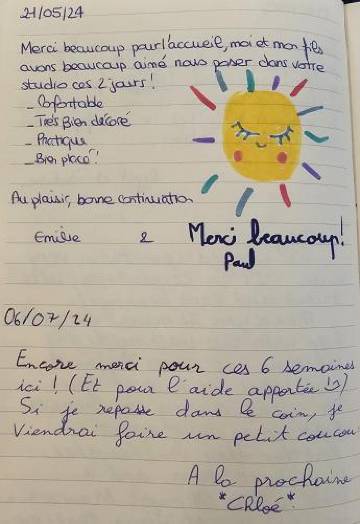 21/05/24
Merci beaucoup pour l'accueil, moi et mon fils
avons beaucoup aimé nous poser dans votre
studio ces 2 jours!
- Confortable
- Très Bien décoré
- Pratique
- Bien placé!
Au plaisir, bonne continuation
Emilie & Merci beaucoup!
Paul
06/07/24
Encore merci pour ces 6 semaines
ici ! (Et pour l'aide apportée)
Si je repasse dans le coin, je
viendrai faire un petit coucou
A la prochaine
*Chloé*